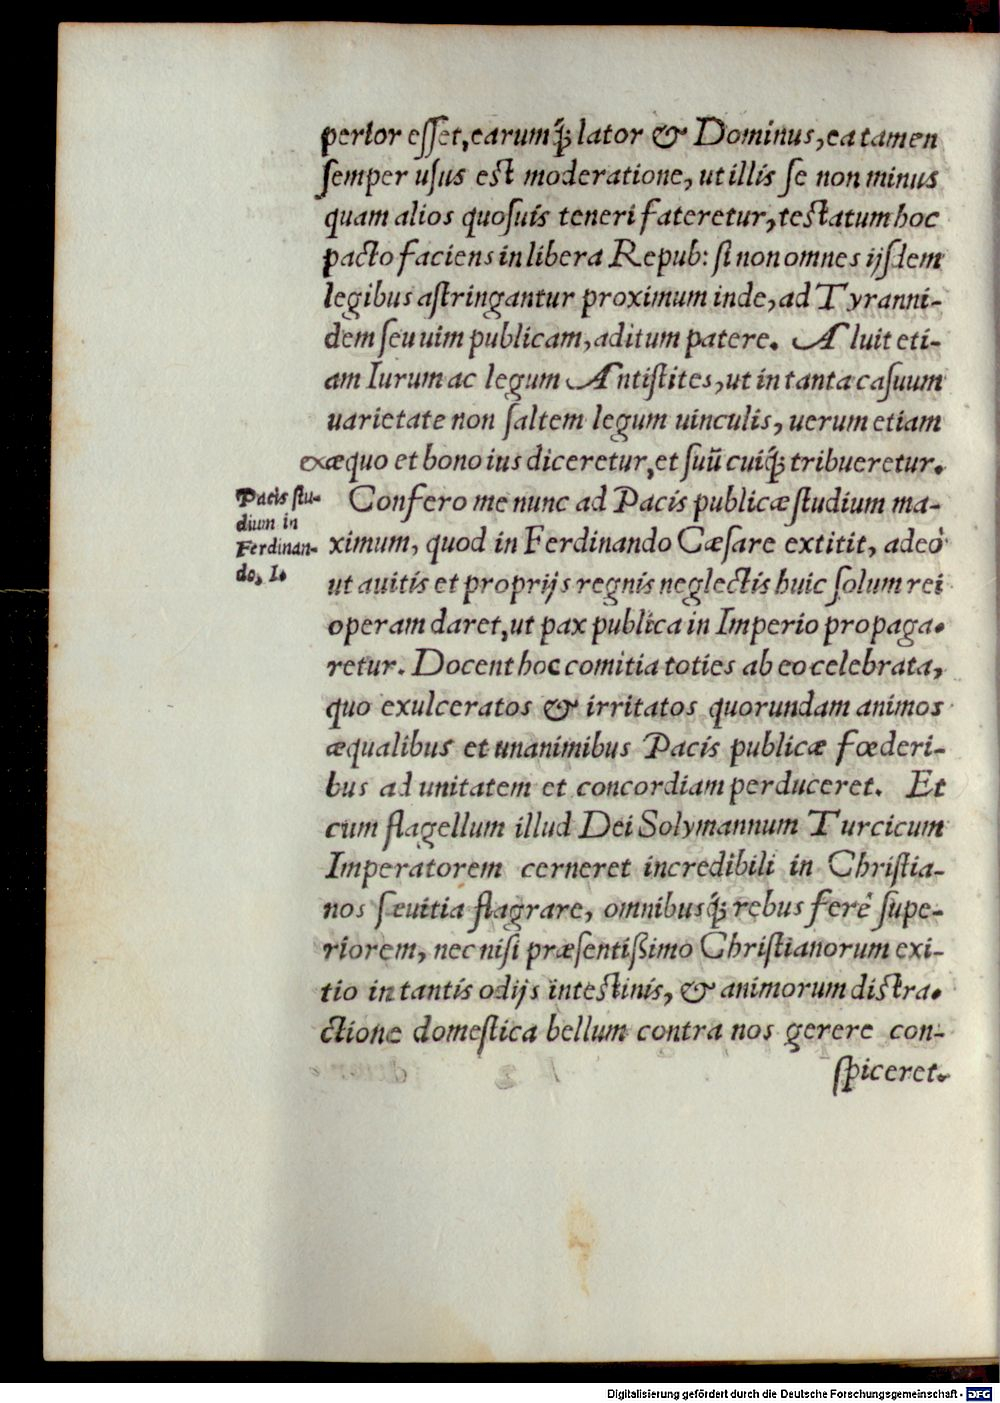 perior eſſet, earumq́; lator & Dominus, ea tamen
ſemper uſus eſt moderatione, ut illis ſe non minus
quam alios quoſuis teneri fateretur, teſtatum hoc
pacto faciens in libera Repub: ſi non omnes ijſdem
legibus aſtringantur proximum inde, ad Tyranni-
dem ſeu uim publicam, aditum patere. Aluit eti-
am Iurum ac legum Antiſtites, ut in tanta caſuum
uarietate non ſaltem legum uinculis, uerum etiam
ex æquo et bono ius diceretur, et ſuũ cuiq́; tribueretur.
Pacis ſtu-
dium in
Ferdinan-
do, I.
Confero me nunc ad Pacis publicæ ſtudium ma-
ximum, quod in Ferdinando Cæſare extitit, adeò
ut auitis et proprijs regnis neglectis huic ſolum rei
operam daret, ut pax publica in Imperio propaga-
retur. Docent hoc comitia toties ab eo celebrata,
quo exulceratos & irritatos quorundam animos
æqualibus et unanimibus Pacis publicæ fœderi-
bus ad unitatem et concordiam perduceret. Et
cum flagellum illud Dei Solymannum Turcicum
Imperatorem cerneret incredibili in Chriſtia-
nos ſæuitia flagrare, omnibusq́; rebus ferè ſupe-
riorem, nec niſi præſentißimo Chriſtianorum exi-
tio in tantis odijs inteſtinis, & animorum diſtra-
ctione domeſtica bellum contra nos gerere con-
ſpiceret.
Digitalisierung gefördert durch die Deutsche Forschungsgemeinschaft - DFG